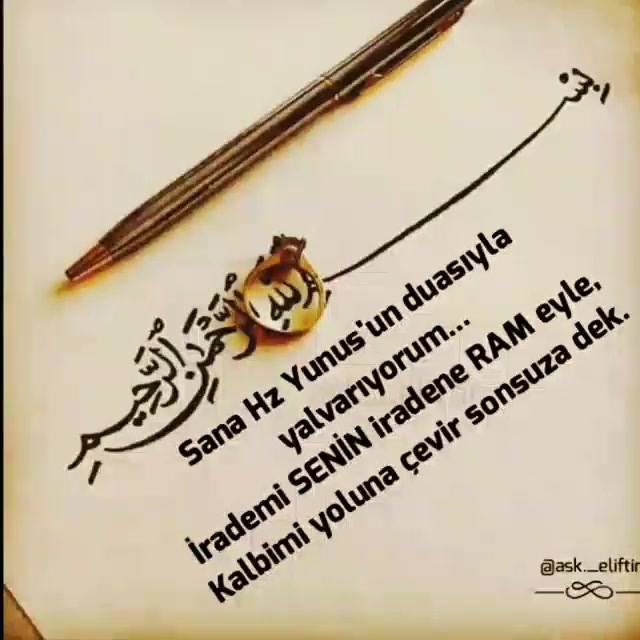 بسم الله الرحمن الرحيم
Sana Hz Yunus'un duasıyla
yalvarıyorum...
İrademi SENİN iradene RAM eyle,
Kalbimi yoluna çevir sonsuza dek.
@ask._eliftir